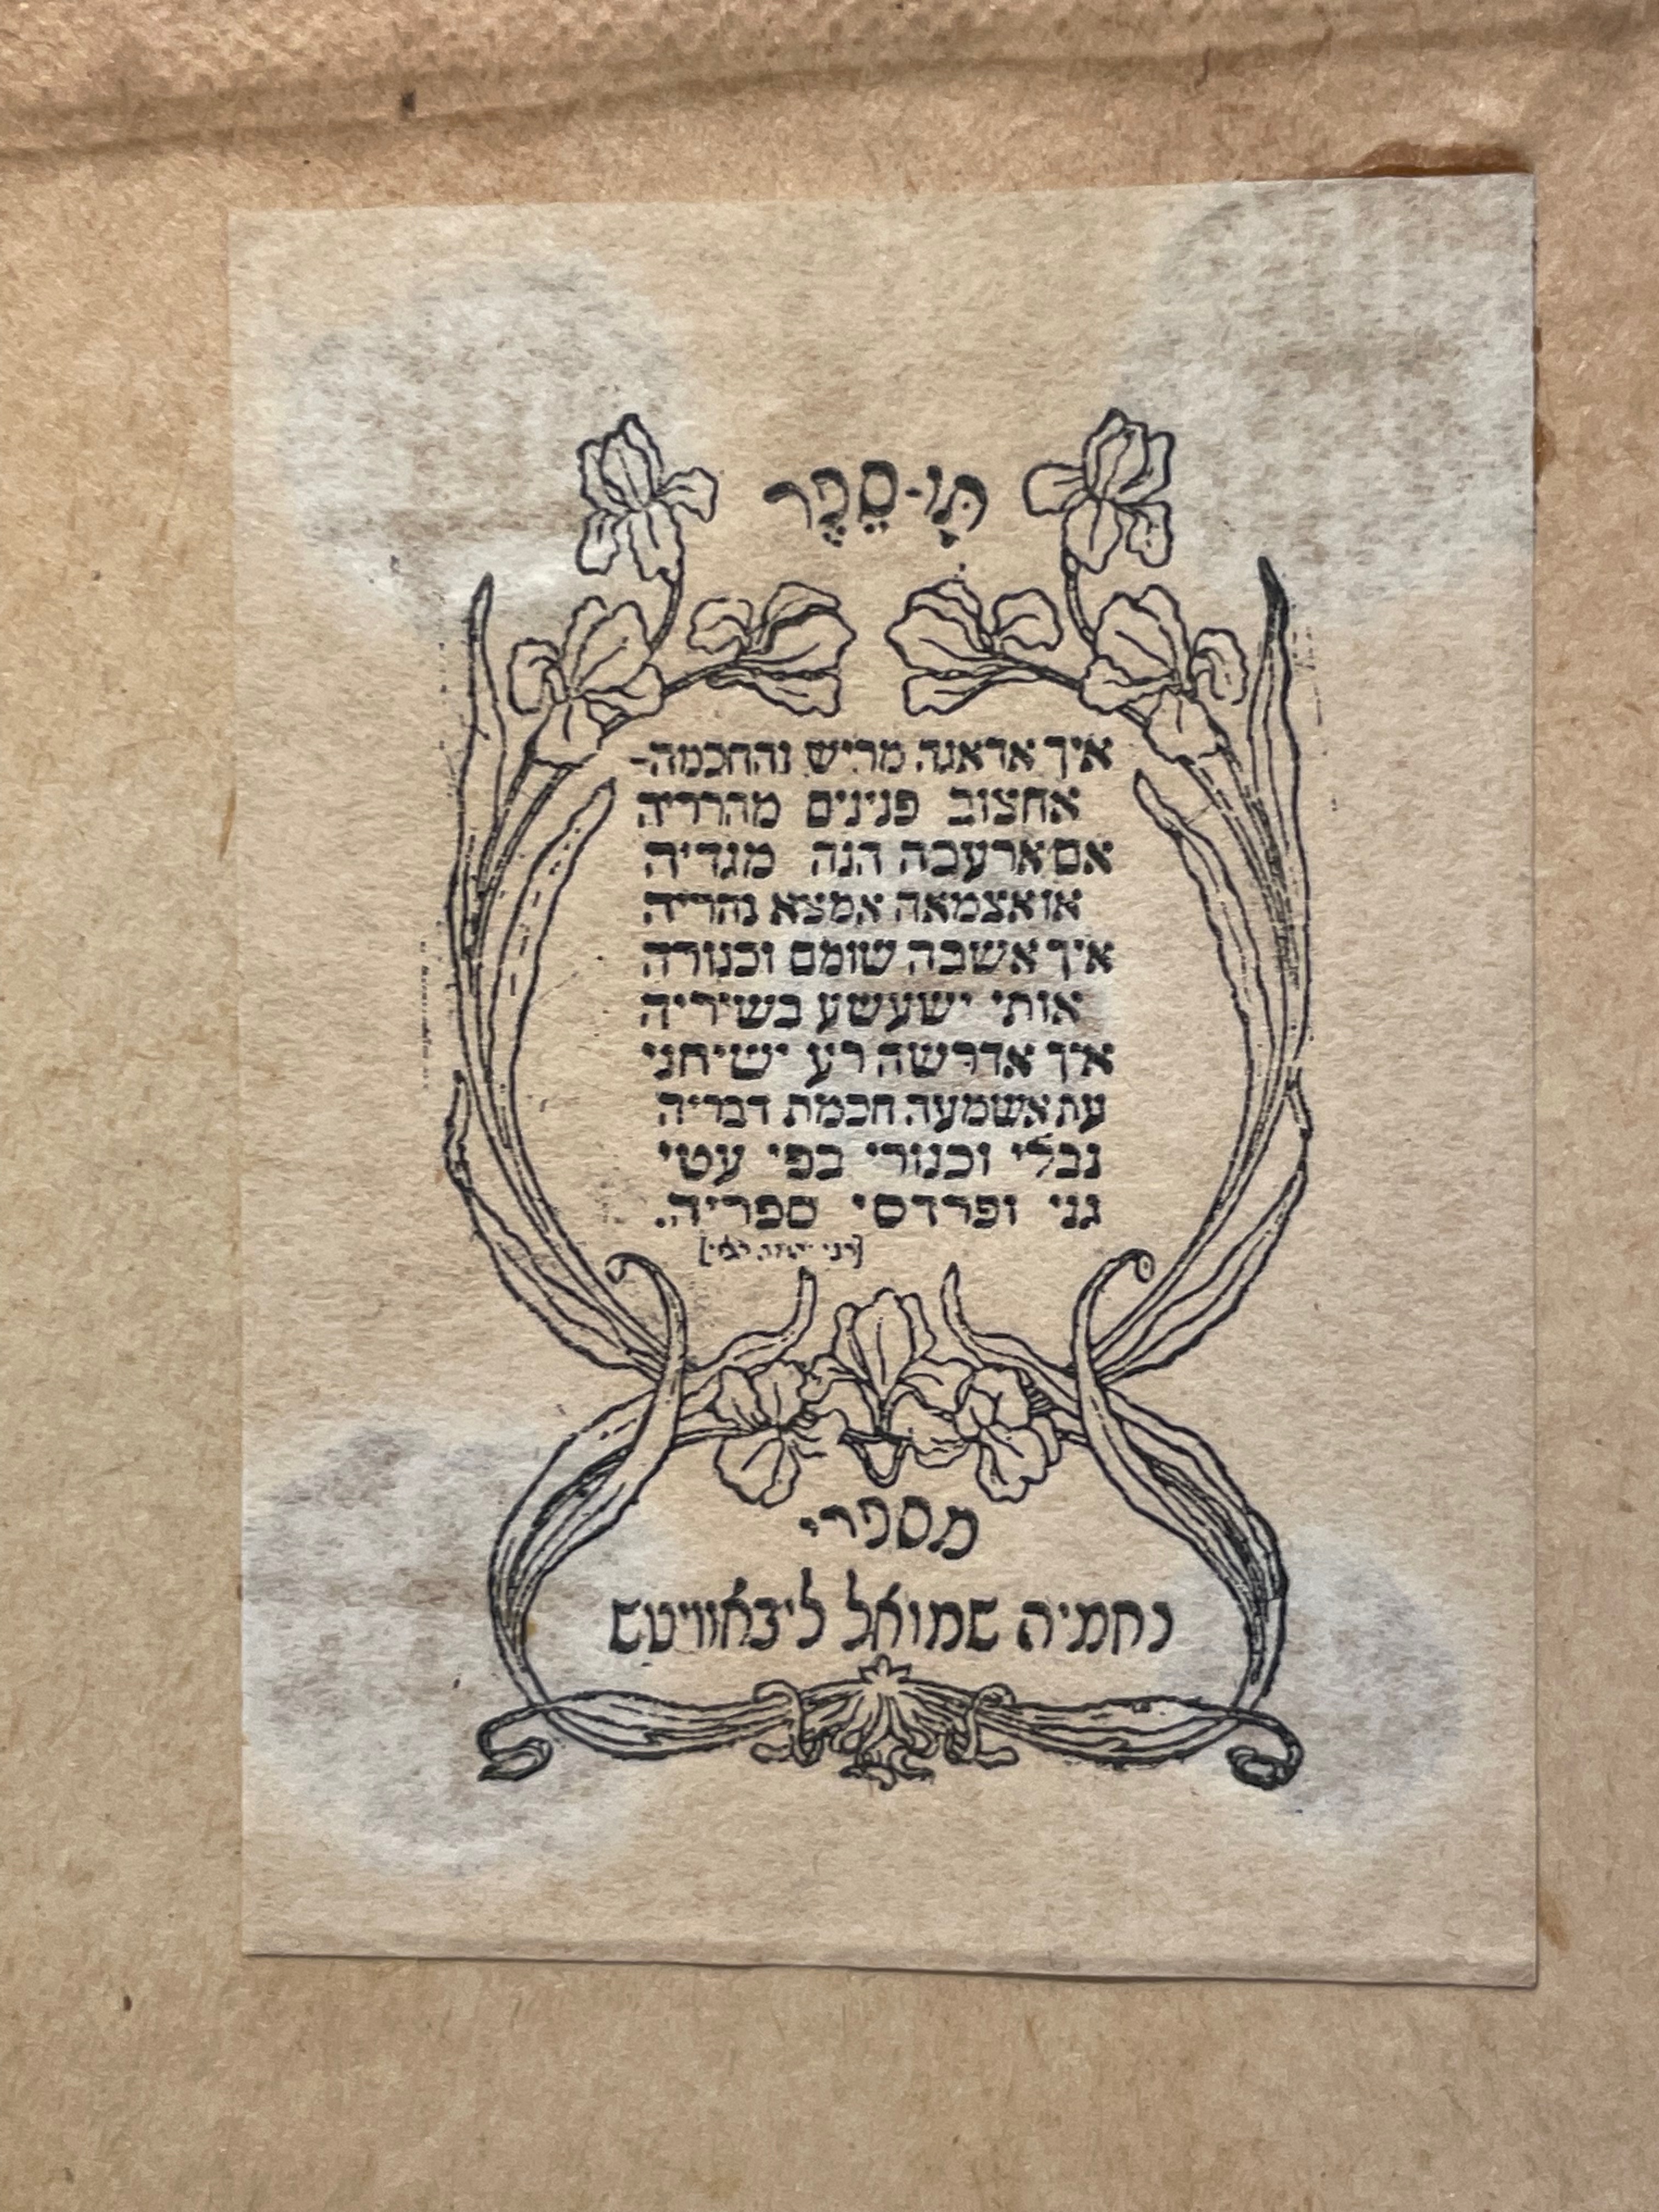 תָּו-סֵפֶר
איך אדאגה מריש והחכמה-
אחצוב פנינים מהרריה
אם ארעבה הנה מגדיה
או אצמאה אמצא נהריה
איך אשבה שומם וכנורה
אותי ישעשע בשיריה
איך אדרשה רע ישיחני
עת אשמעה חכמת דבריה
נבלי וכנורי בפי עטי
גני ופרדסי ספריה.
מספרי
נחמיה שמואל ליבאוויטש